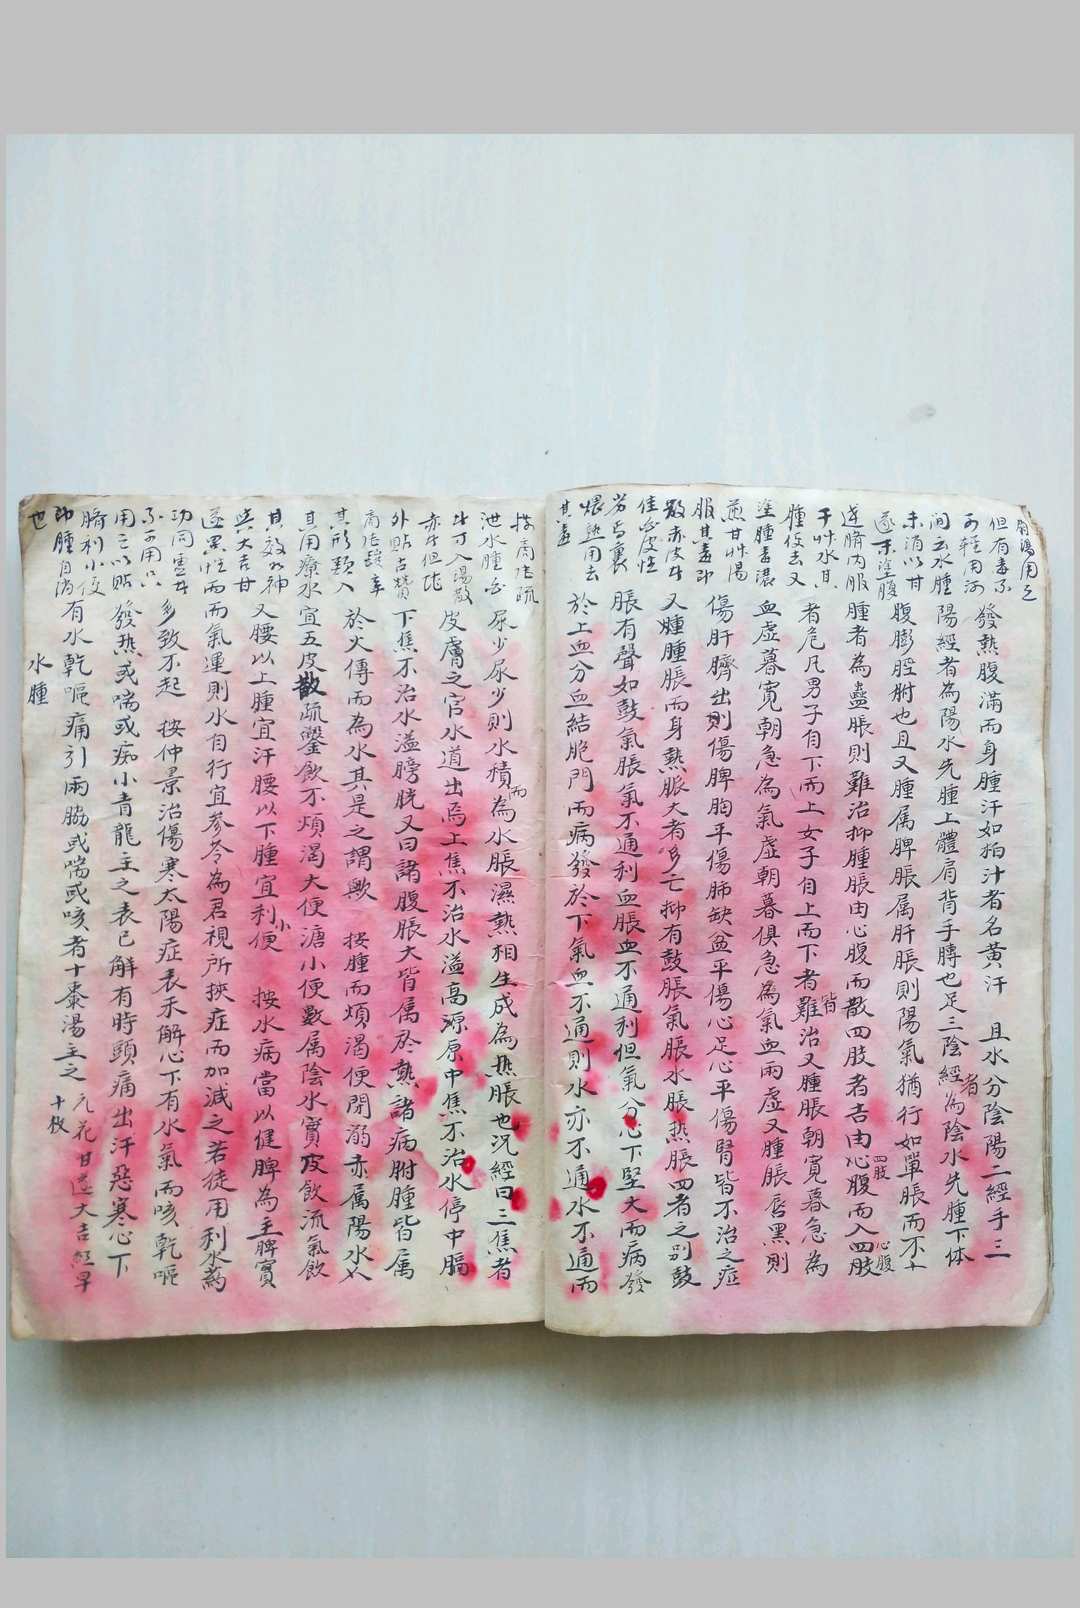 發熱腹滿而身腫汗如柏汁者名黃汗 且水分陰陽二經手三
陽經者為陽水先腫上體肩背手膊也足三陰經者為陰水先腫下体
腹膨脛胕也且又腫属脾脹属肝脹則陽氣猶行如單脹而不
腫者為蠱脹則難治抑腫脹由心腹而散四肢者吉由四肢心腹而入四肢心腹
者危凡男子自下而上女子自上而下者皆難治又腫脹朝寛暮急為
血虛暮寛朝急為氣虛朝暮俱急為氣血兩虛又腫脹唇黑則
傷肝臍出則傷脾胸平傷肺缺盆平傷心足心平傷腎皆不治之症
又腫腫脹而身熱脈大者多亡抑有鼓脹氣脹水脹熱脹四者之別鼓
脹有聲如鼓氣脹氣不通利血脹血不通利但氣分心下堅大而病發
於上血分血結胞門而病發於下氣血不通則水亦不通水不通而
尿少尿少則水積而為水脹濕熱相生成為熱脹也況經曰三焦者
皮膚之官水道出焉上焦不治水溢高源原中焦不治水停中膈
下焦不治水溢膀胱又曰諸腹脹大皆属於熱諸病胕腫皆属
於火傳而為水其是之謂歟 按腫而煩渴便閉溺赤属陽水
宜五皮散疏鑿飲不煩渴大便溏小便數属陰水實皮飲流氣飲
又腰以上腫宜汗腰以下腫宜利小便 按水病當以健脾為主脾實
而氣運則水自行宜參苓為君視所挾症而加減之若徒用利水藥
多致不起 按仲景治傷寒太陽症表禾解心下有水氣而咳乾嘔
發热或喘或痴小青龍主之表已解有時頭痛出汗惡寒心下
有水乾嘔痛引兩脇或喘或咳者十棗湯主之 元花甘遂大吉
十枚
水腫
但有毒不
可輕用河
間云水腫
未消以甘
遂末塗腹
遶臍內服
甘艸水其
腫便去又
塗腫毒濃
煎甘艸湯
服其毒即
散赤皮
佳
煨熟用去
其毒
泄水腫
外貼古赞
其形類人
其用療水
其效如神
與大吉甘
遂異性而
功同虛
不可用以
用之以貼
臍利小便
即腫自消
也